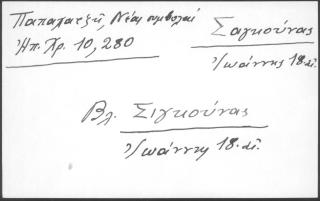 Παπαχατζῆ, Νέαι συμβολαί
Ἠπ. Χρ. 10, 280
Σαγκούνας
Ἰωάννης 18. αἰ.
Βλ. Σιγκούνας
Ἰωάννης 18. αἰ.